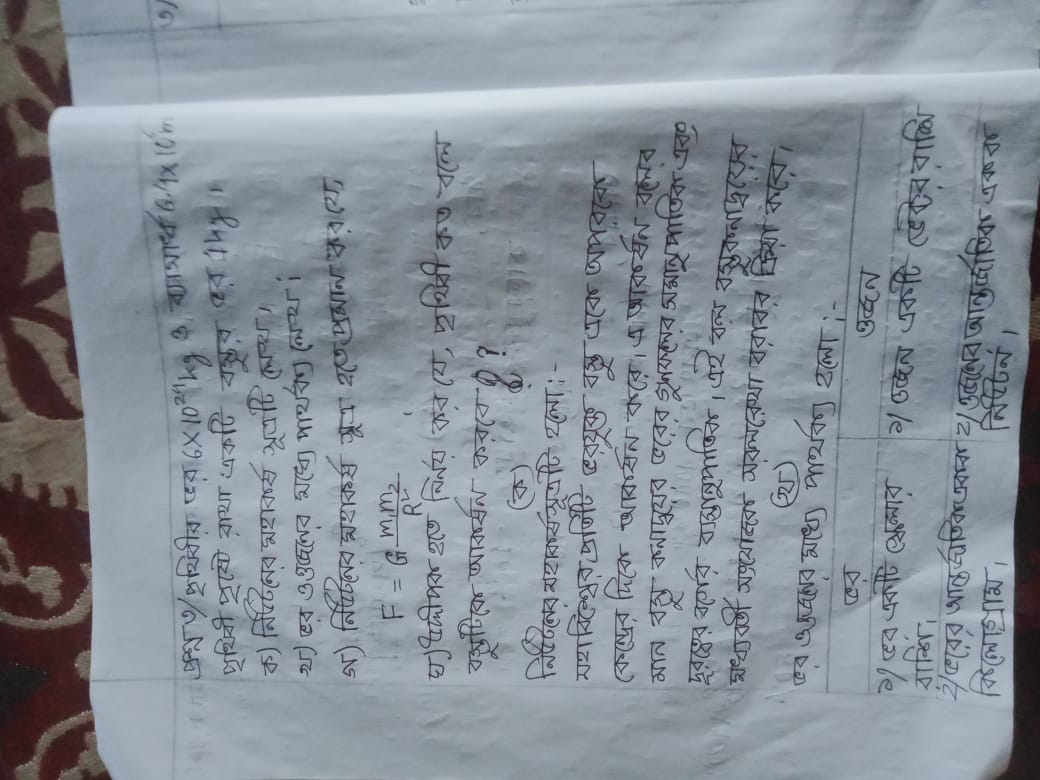 প্রশ্ন ৩/ পৃথিবীর ভর 6X10²⁴kg ও ব্যাসার্ধ 6.4x10⁶m
পৃথিবী পৃষ্ঠে রাখা একটি বস্তুর ভর 1kg।
ক) নিউটনের মহাকর্ষ সূত্রটি লেখ।
খ) ভর ও ওজনের মধ্যে পার্থক্য লেখ।
গ) নিউটনের মহাকর্ষ সূত্র হতে প্রমান কর যে,
F = G m₁m₂/R²
ঘ) উদ্দীপক হতে নির্ণয় কর যে, পৃথিবী কত বলে
বস্তুটিকে আকর্ষন করবে?
(ক)
নিউটনের মহাকর্ষ সূত্রটি হলো:-
মহাবিশ্বের প্রতিটি বস্তু একে অপরকে
কেন্দ্রের দিকে আকর্ষন করে। এ আকর্ষন বলের
মান বস্তু কনাদ্বয়ের ভরের গুনফলের সমানুপাতিক এবং
দূরত্বের বর্গের ব্যস্তানুপাতিক। এই বল বস্তুকনাদ্বয়ের
মধ্যবর্তী সংযোজক সরলরেখা বরাবর ক্রিয়া করে।
(খ)
ভর ও ওজনের মধ্যে পার্থক্য হলো:-
ভর ওজন
১/ ভর একটি স্কেলার ১/ ওজন একটি ভেক্টর রাশি
রাশি।
২/ ভরের আন্তর্জাতিক একক ২/ ওজনের আন্তর্জাতিক একক
কিলোগ্রাম। নিউটন।